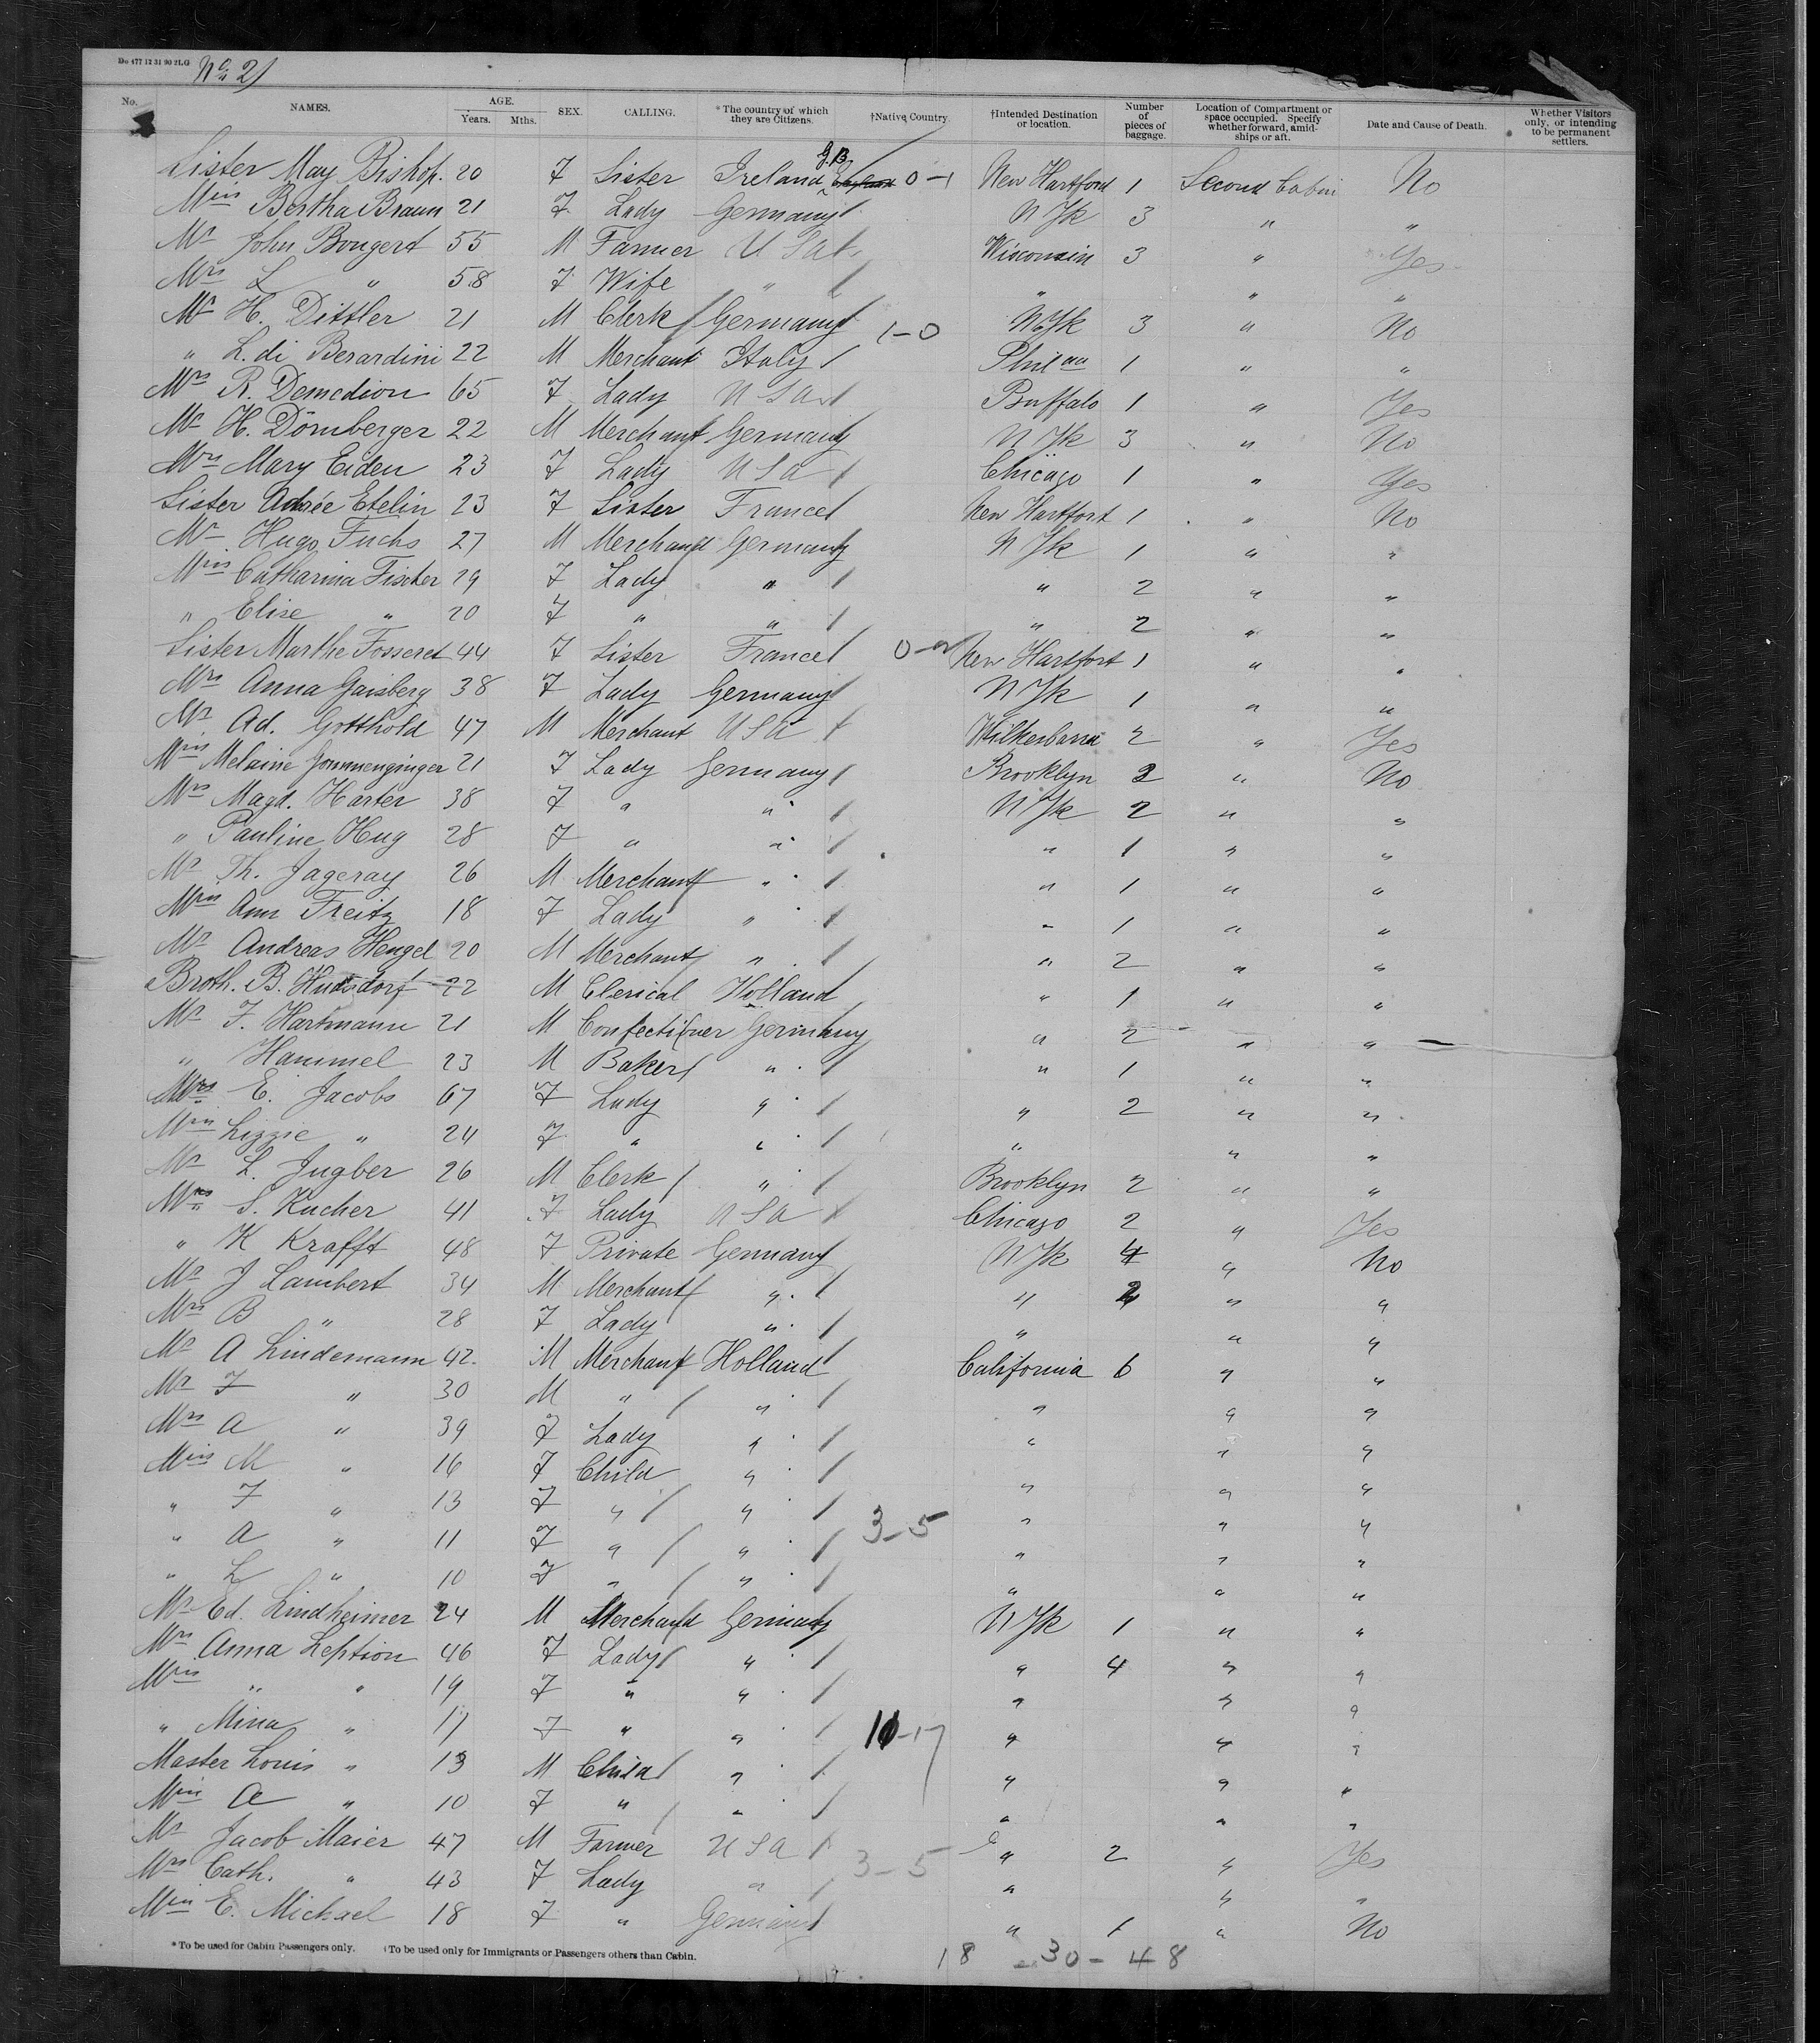 Do 477 12 31 90 2LG No 2)
No. NAMES. AGE. Years. Mths. SEX. CALLING. *The country of which they are Citizens. †Native Country. †Intended Destination or location. Number of pieces of baggage. Location of Compartment or space occupied. Specify whether forward, amidships or aft. Date and Cause of Death. Whether Visitors only, or intending to be permanent settlers.
G.B.
Sister May Bishop. 20 F Sister Ireland 0-1 New Hartford 1 Second Cabin No
Miss Bertha Braun 21 F Lady Germany N Yk 3 " "
Mr John Bongert 55 M Farmer U S A Wisconsin 3 " Yes
Mrs L " 58 F Wife " " " "
Mr H. Dittler 21 M Clerk Germany 1-0 N.Yk 3 " No
" L. di Berardini 22 M Merchant Italy Phil aa 1 " "
Mrs R. Demedion 65 F Lady U S A Buffalo 1 " Yes
Mr H. Dörnberger 22 M Merchant Germany N Yk 3 " No
Mrs Mary Eiden 23 F Lady U S A Chicago 1 " Yes
Sister Etelin 23 F Sister France New Hartfort 1 " No
Mr Hugo Fuchs 27 M Merchand Germany N Yk 1 " "
Miss Catharina Fischer 29 F Lady " " 2 " "
" Elise " 20 F " " " 2 " "
Sister Marthe Fosseret 44 F Sister France 0-2 New Hartfort 1 " "
Mrs Anna Gaisberg 38 F Lady Germany N Yk 1 " "
Mr Ad. Gotthold 47 M Merchant U S A Wilkesbarra 2 " Yes
Miss Melaine Gommenginger 21 F Lady Germany Brooklyn 2 " No
Mrs Magd. Harter 38 F " " N Yk 2 " "
" Pauline Hug 28 F " " " 1 " "
Mr Th. Jageray 26 M Merchant " " 1 " "
Miss Ann Freitz 18 F Lady " " 1 " "
Mr Andreas Hengel 20 M Merchant " " 2 " "
Broth. B. Hudsdorf 22 M Clerical Holland " 1 " "
Mr F. Hartmann 21 M Confectioner Germany " 2 " "
" Hammel 23 M Baker " " 1 " "
Mrs E. Jacobs 67 F Lady " " 2 " "
Miss Lizzie " 24 F " " " " "
Mr L. Jugber 26 M Clerk " Brooklyn 2 " "
Mrs S. Kucher 41 F Lady U S A Chicago 2 " Yes
" K Krafft 48 F Private Germany N Yk 4 " No
Mr J Lambert 34 M Merchant " " 2 " "
Mrs B " 28 F Lady " " " "
Mr A Lindemann 42. M Merchant Holland California 6 " "
Mr F " 30 M " " " " "
Mrs A " 39 F Lady " " " "
Miss M " 16 F Child " " " "
" F " 13 F " " 3-5 " " "
" A " 11 F " " " " "
" L " 10 F " " " " "
Mr Ed. Lindheimer 24 M Merchand Germany N Yk 1 " "
Mrs Anna Leption 46 F Lady " " 4 " "
Miss " " 19 F " " " " "
" Mina " 17 F " " 10-17 " " "
Master Louis " 13 M Child " " " "
Miss A " 10 F " " " " "
Mr Jacob Maier 47 M Farmer U S A 3-5 " 2 " Yes
Mrs Cath. " 43 F Lady " " " "
Miss E. Michael 18 F " Germany " 1 " No
*To be used for Cabin Passengers only. †To be used only for Immigrants or Passengers others than Cabin.
18 - 30 - 48